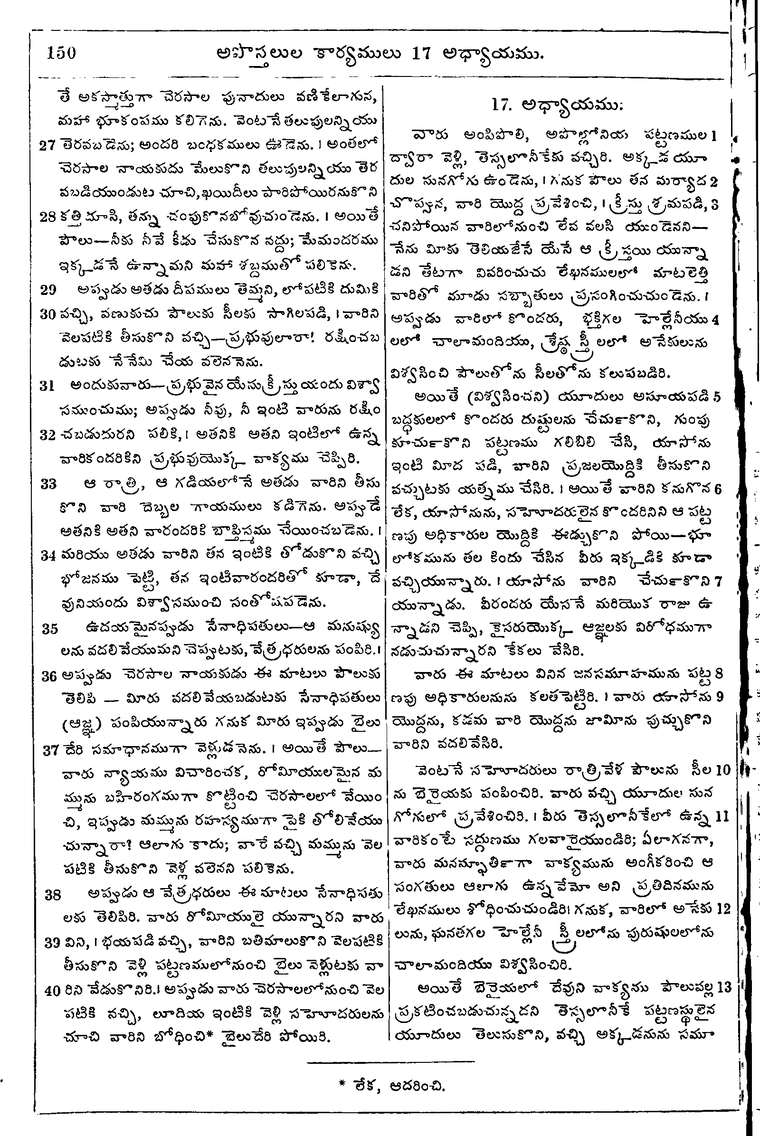 150 అపొస్తలుల కార్యములు 17 అధ్యాయము.
తే అకస్మాత్తుగా చెరసాల పునాదులు వణికేలాగున,
మహా భూకంపము కలిగెను. వెంటనే తలుపులన్నియు
27 తెరవబడెను; అందరి బంధకములు ఊడెను. । అంతలో
చెరసాల నాయకుడు మేలుకొని తలుపులన్నియు తెర
వబడియుండుట చూచి, ఖయిదీలు పారిపోయిరనుకొని
28 కత్తి దూసి, తన్ను చంపుకొనబోవుచుండెను. । అయితే
పౌలు—నీకు నీవే కీడు చేసుకొన వద్దు; మేమందరము
ఇక్కడనే ఉన్నామని మహా శబ్దముతో పలికెను.
29 అప్పుడు అతడు దీపములు తెమ్మని, లోపటికి దుమికి
30 వచ్చి, వణుకుచు పౌలుకు సీలకు సాగిలపడి, । వారిని
వెలపటికి తీసుకొని వచ్చి—ప్రభువులారా! రక్షించబ
డుటకు నేనేమి చేయ వలెననెను.
31 అందుకువారు—ప్రభువైన యేసు క్రీస్తు యందు విశ్వా
సముంచుము; అప్పుడు నీవు, నీ ఇంటి వారును రక్షిం
32 చబడుదురని పలికి, । అతనికి అతని ఇంటిలో ఉన్న
వారికందరికిని ప్రభువుయొక్క వాక్యము చెప్పిరి.
33 ఆ రాత్రి, ఆ గడియలోనే అతడు వారిని తీసు
కొని వారి దెబ్బల గాయములు కడిగెను. అప్పుడే
అతనికి అతని వారందరికి బాప్తిస్మము చేయించబడెను. ।
34 మరియు అతడు వారిని తన ఇంటికి తోడుకొని వచ్చి
భోజనము పెట్టి, తన ఇంటివారందరితో కూడా, దే
వునియందు విశ్వాసముంచి సంతోషపడెను.
35 ఉదయమైనప్పుడు సేనాధిపతులు—ఆ మనుష్యు
లను వదలివేయుమని చెప్పుటకు, వేత్రధరులను పంపిరి. ।
36 అప్పుడు చెరసాల నాయకుడు ఈ మాటలు పౌలుకు
తెలిపి — మీరు వదలివేయబడుటకు సేనాధిపతులు
(ఆజ్ఞ) పంపియున్నారు గనుక మీరు ఇప్పుడు బైలు
37 దేరి సమాధానముగా వెళ్లుడనెను. । అయితే పౌలు—
వారు న్యాయము విచారించక, రోమీయులమైన మ
మ్మును బహిరంగముగా కొట్టించి చెరసాలలో వేయిం
చి, ఇప్పుడు మమ్మును రహస్యముగా పైకి తోలివేయు
చున్నారా! ఆలాగు కాదు; వారే వచ్చి మమ్మును వెల
పటికి తీసుకొని వెళ్ల వలెనని పలికెను.
38 అప్పుడు ఆ వేత్రధరులు ఈ మాటలు సేనాధిపతు
లకు తెలిపిరి. వారు రోమీయులై యున్నారని వారు
39 విని, । భయపడి వచ్చి, వారిని బతిమాలుకొని వెలపటికి
తీసుకొని వెళ్లి పట్టణములోనుంచి బైలు వెళ్లుటకు వా
40 రిని వేడుకొనిరి. । అప్పుడు వారు చెరసాలలోనుంచి వెల
పటికి వచ్చి, లూదియ ఇంటికి వెళ్లి సహోదరులను
చూచి వారిని బోధించి* బైలుదేరి పోయిరి.
17. అధ్యాయము:
వారు అంపిపొలి, అపొల్లోనియ పట్టణముల 1
ద్వారా వెళ్లి, తెస్సలొనీకేకు వచ్చిరి. అక్కడ యూ
దుల సునగోగు ఉండెను, । గనుక పౌలు తన మర్యాద 2
చొప్పున, వారి యొద్ద ప్రవేశించి, । క్రీస్తు శ్రమపడి, 3
చనిపోయిన వారిలోనుంచి లేవ వలసి యుండెనని—
నేను మీకు తెలియజేసే యేసే ఆ క్రీస్తయి యున్నా
డని తేటగా వివరించుచు లేఖనములలో మాటలెత్తి
వారితో మూడు సబ్బాతులు ప్రసంగించుచుండెను. ।
అప్పుడు వారిలో కొందరు, భక్తిగల హెల్లేనీయు 4
లలో చాలామందియు, శ్రేష్ఠ స్త్రీలలో అనేకులును
విశ్వసించి పౌలుతోను సీలతోను కలుపబడిరి.
అయితే (విశ్వసించని) యూదులు అసూయపడి 5
బద్ధకులలో కొందరు దుష్టులను చేర్చుకొని, గుంపు
కూర్చుకొని పట్టణము గలిబిలి చేసి, యాసోను
ఇంటి మీద పడి, వారిని ప్రజలయొద్దికి తీసుకొని
వచ్చుటకు యత్నము చేసిరి. । అయితే వారిని కనుగొన 6
లేక, యాసోనును, సహోదరులైన కొందరినిని ఆ పట్ట
ణపు అధికారుల యొద్దికి ఈడ్చుకొని పోయి—భూ
లోకమును తల కిందు చేసిన వీరు ఇక్కడికి కూడా
వచ్చియున్నారు. । యాసోను వారిని చేర్చుకొని 7
యున్నాడు. వీరందరు యేసనే మరియొక రాజు ఉ
న్నాడని చెప్పి, కైసరుయొక్క ఆజ్ఞలకు విరోధముగా
నడుచుచున్నారని కేకలు వేసిరి.
వారు ఈ మాటలు వినిన జనసమూహమును పట్ట 8
ణపు అధికారులనును కలతపెట్టిరి. । వారు యాసోను 9
యొద్దను, కడమ వారి యొద్దను జామీను పుచ్చుకొని
వారిని వదలివేసిరి.
వెంటనే సహోదరులు రాత్రివేళ పౌలును సీల 10
ను బెరైయకు పంపించిరి. వారు వచ్చి యూదుల సున
గోగులో ప్రవేశించిరి. । వీరు తెస్సలొనీకేలో ఉన్న 11
వారికంటే సద్గుణము గలవారైయుండిరి; ఏలాగనగా,
వారు మనస్ఫూర్తిగా వాక్యమును అంగీకరించి ఆ
సంగతులు ఆలాగు ఉన్నవేమో అని ప్రతిదినమును
లేఖనములు శోధించుచుండిరి। గనుక, వారిలో అనేకు 12
లును, ఘనతగల హెల్లేనీ స్త్రీలలోను పురుషులలోను
చాలామందియు విశ్వసించిరి.
అయితే బెరైయలో దేవుని వాక్యము పౌలువల్ల 13
ప్రకటించబడుచున్నదని తెస్సలొనీకే పట్టణస్థులైన
యూదులు తెలుసుకొని, వచ్చి అక్కడనును సమూ
* లేక, ఆదరించి.